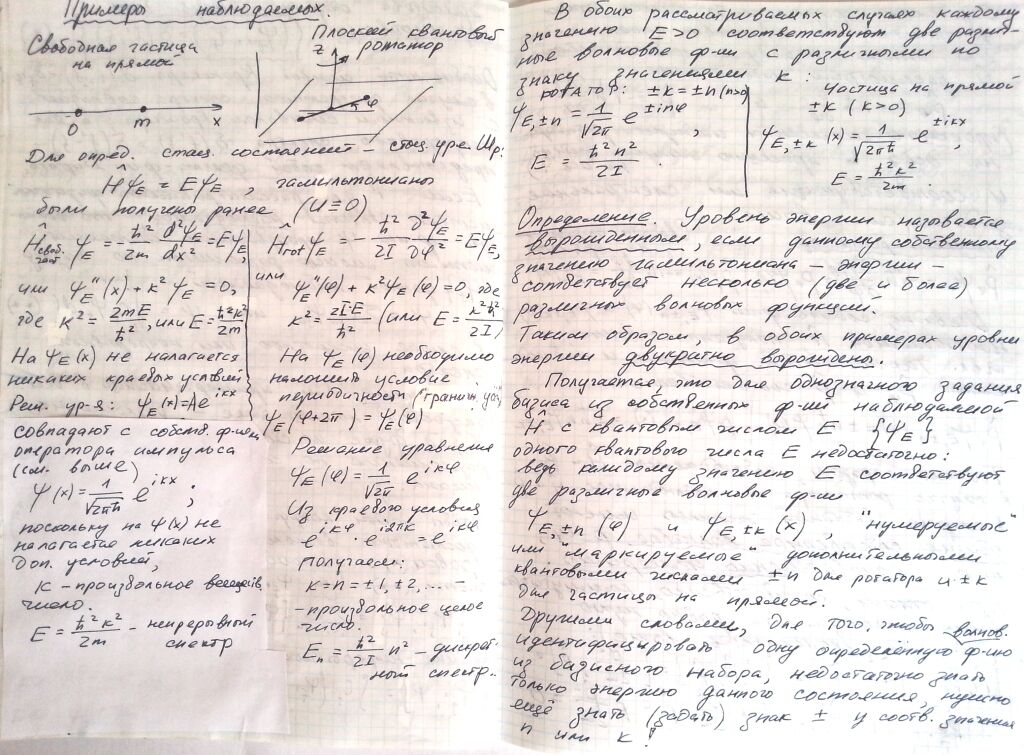 Примеры наблюдаемых.
Свободная частица
на прямой
0 m x
Плоский квантовый
ротатор
z
φ
Для опред. стац. состояний – стац. ур. Шр:
Ĥψ_E = Eψ_E, гамильтонианы
были получены ранее (U ≡ 0)
Ĥ_своб. част ψ_E = -ħ²/2m d²ψ_E/dx² = Eψ_E,
или ψ_E''(x) + k²ψ_E = 0,
где k² = 2mE/ħ², или E = ħ²k²/2m
На ψ_E(x) не налагается
никаких краевых условий
Реш. ур-я: ψ_E(x) = Ae^{ikx}
совпадают с собств. ф-ями
оператора импульса
(см. выше)
ψ(x) = 1/√(2πħ) e^{ikx};
поскольку на ψ(x) не
налагается никаких
доп. условий,
k – произвольное веществ.
число.
E = ħ²k²/2m – непрерывный
спектр
Ĥ_rot ψ_E = -ħ²/2I ∂²ψ_E/∂φ² = Eψ_E,
или
ψ_E''(φ) + k²ψ_E(φ) = 0, где
k² = 2IE/ħ² (или E = k²ħ²/2I)
На ψ_E(φ) необходимо
наложить условие
периодичности (гранич. усл.)
ψ_E(φ+2π) = ψ_E(φ)
Решение уравнения
ψ_E(φ) = 1/√(2π) e^{ikφ}
Из краевого условия
e^{ikφ} · e^{i2πk} = e^{ikφ}
получаем:
k = n = ±1, ±2, ... –
– произвольное целое
число.
E_n = ħ²/2I n² – дискрет-
ный спектр..
В обоих рассматриваемых случаях каждому
значению E>0 соответствуют две различ-
ные волновые ф-ии с различными по
знаку значениями k:
ротатор: ±k = ±n (n>0)
ψ_{E,±n} = 1/√(2π) e^{±inφ},
E = ħ²n²/2I.
частица на прямой
±k (k>0)
ψ_{E,±k}(x) = 1/√(2πħ) e^{±ikx},
E = ħ²k²/2m.
Определение. Уровень энергии называется
вырожденным, если данному собственному
значению гамильтониана – энергии –
соответствует несколько (две и более)
различных волновых функций.
Таким образом, в обоих примерах уровни
энергии двукратно вырождены.
Получается, что для однозначного задания
базиса из собственных ф-ий наблюдаемой
Ĥ с квантовым числом E {ψ_E}
одного квантового числа E недостаточно:
ведь каждому значению E соответствуют
две различные волновые ф-ии
ψ_{E,±n}(φ) и ψ_{E,±k}(x), "нумеруемые"
или "маркируемые" дополнительными
квантовыми числами ±n для ротатора и ±k
для частицы на прямой.
Другими словами, для того, чтобы
идентифицировать одну определённую волнов. ф-ию
из базисного набора, недостаточно знать
только энергию данного состояния, нужно
ещё знать (задать) знак ± у соотв. значения
n или k!